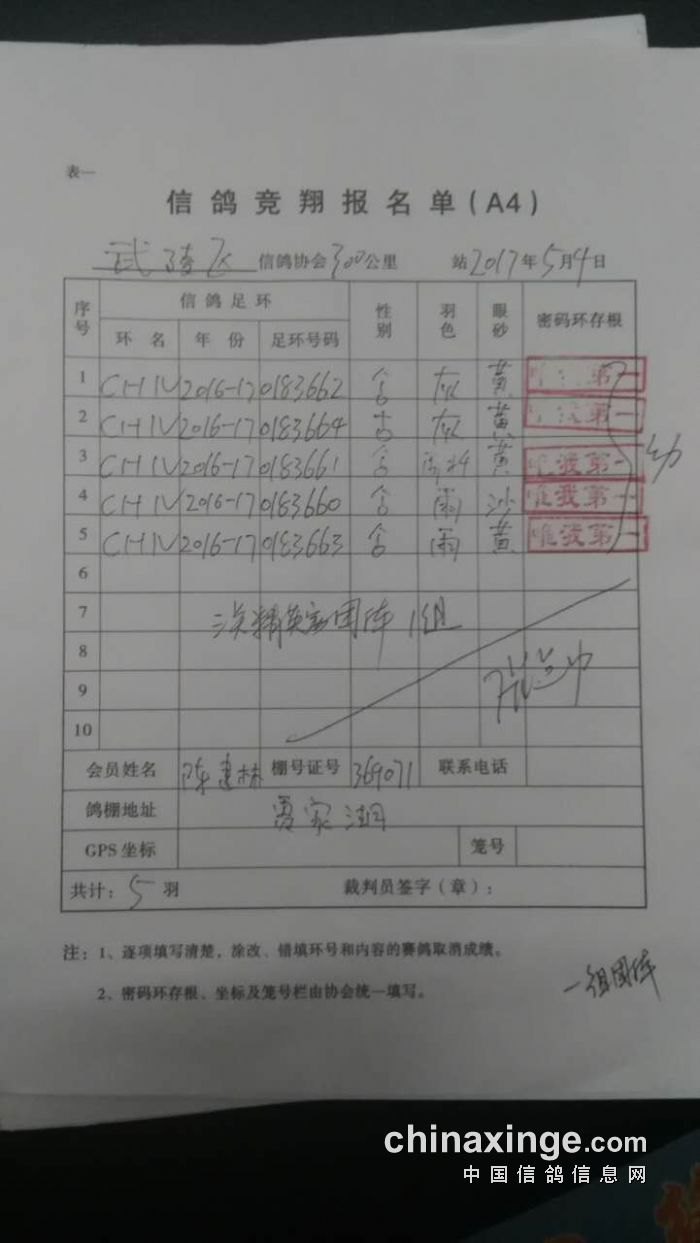 表一
信鸽竞翔报名单(A4)
武陵飞 信鸽协会300公里 站2017年5月4日
序号 信鸽足环 性别 羽色 眼砂 密码环存根
环名 年份 足环号码
1 CHN 2016-17 0183662 灰 黄 第一
2 CHN 2016-17 0183664 灰 黄 第一
3 CHN 2016-17 0183661 黄 唯我第一
4 CHN 2016-17 0183660 雨 沙 唯我第一
5 CHN 2016-17 0183663 雨 黄 唯我第一
幼
6
7 精英赛团阵1组
8
9
10
会员姓名 陈建林 棚号证号 369071 联系电话
鸽棚地址 贾家湖
GPS坐标 笼号
共计:5羽 裁判员签字(章):
注:1、逐项填写清楚,涂改、错填环号和内容的赛鸽取消成绩。
2、密码环存根、坐标及笼号栏由协会统一填写。
一组团阵
chinaxinge.com
中国信鸽信息网